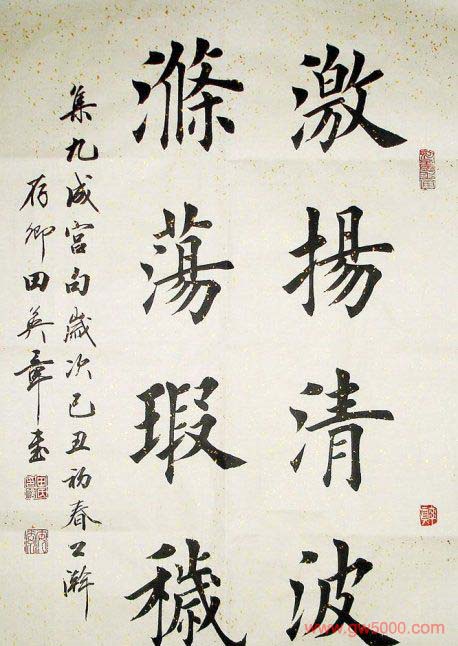 激揚清波
滌蕩瑕穢
集九成宫句歲次己丑初春公瀚
存卿田英章書
www.gw5000.com